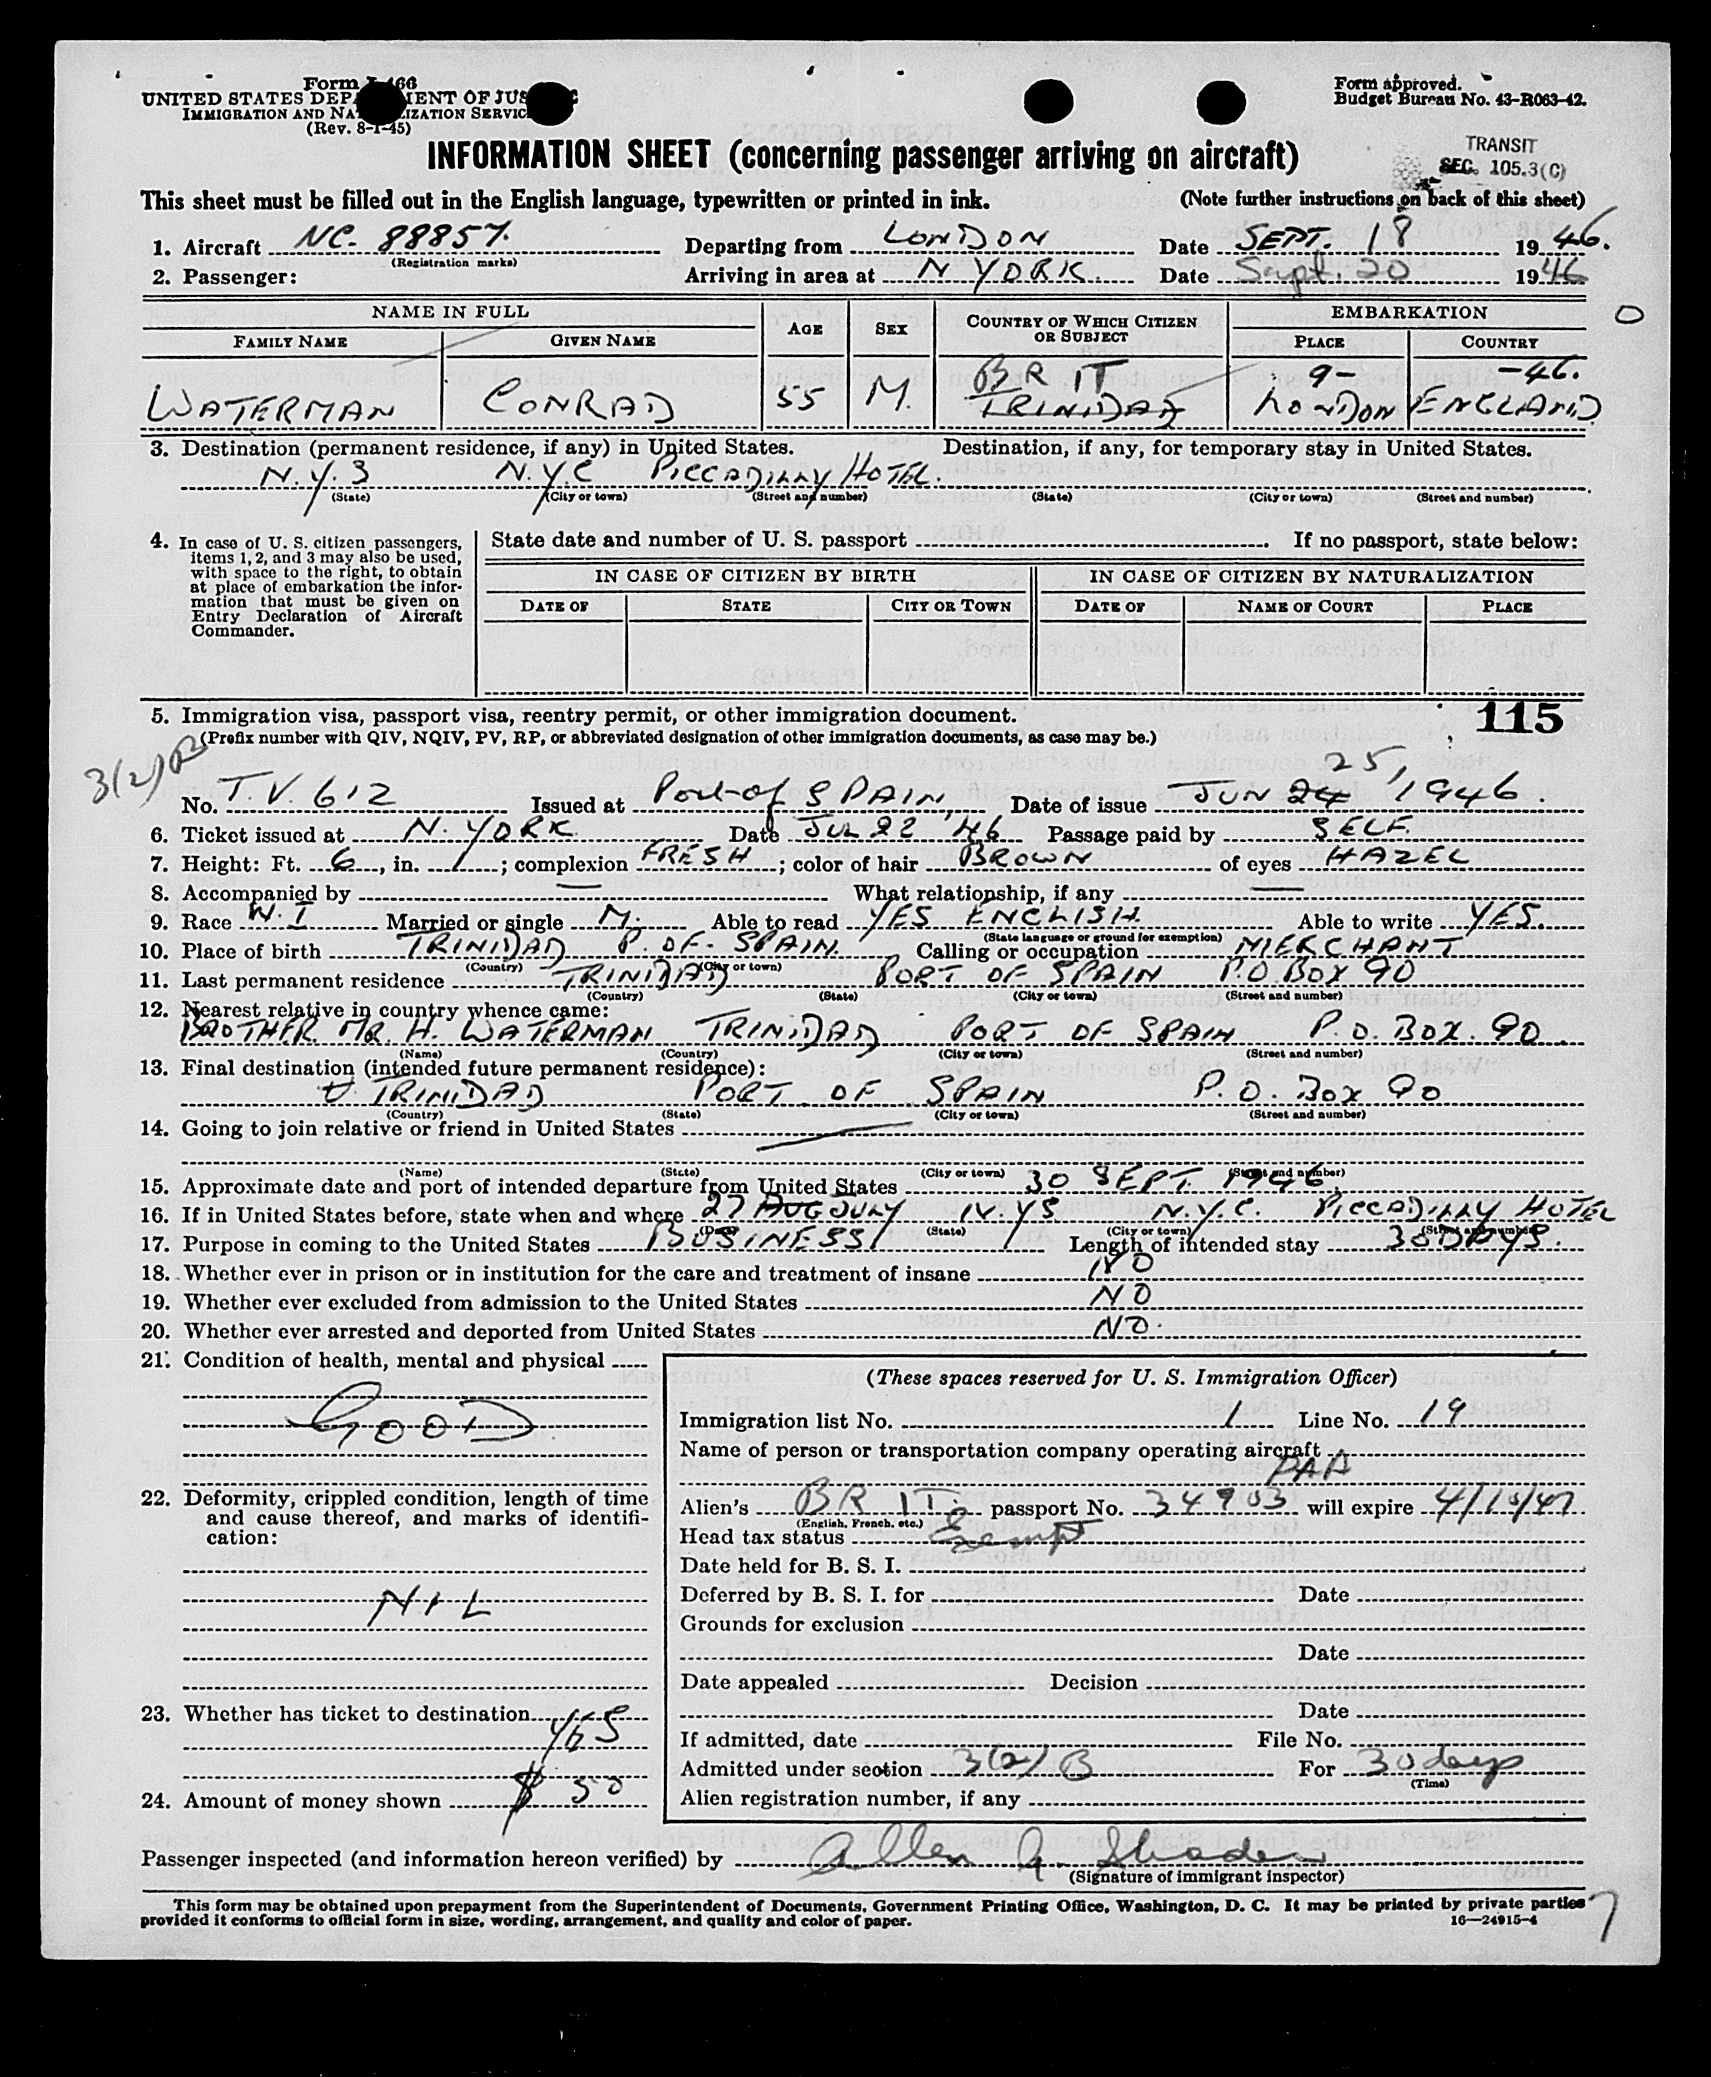 Form I-466
UNITED STATES DEPARTMENT OF JUSTICE
IMMIGRATION AND NATURALIZATION SERVICE
(Rev. 8-1-45)
Form approved.
Budget Bureau No. 43-R063-42.
INFORMATION SHEET (concerning passenger arriving on aircraft)
TRANSIT
SEC. 105.3(C)
This sheet must be filled out in the English language, typewritten or printed in ink. (Note further instructions on back of this sheet)
1. Aircraft NC. 88857. Departing from LONDON Date SEPT. 18 1946.
(Registration marks)
2. Passenger: Arriving in area at N YORK. Date Sept. 20 1946
NAME IN FULL AGE SEX COUNTRY OF WHICH CITIZEN OR SUBJECT EMBARKATION O
FAMILY NAME GIVEN NAME PLACE COUNTRY
BRIT 9- -46.
WATERMAN CONRAD 55 M. TRINIDAD LONDON ENGLAND
3. Destination (permanent residence, if any) in United States. Destination, if any, for temporary stay in United States.
N.Y.S N.Y.C PICCADILLY HOTEL.
(State) (City or town) (Street and number) (State) (City or town) (Street and number)
4. In case of U. S. citizen passengers, items 1, 2, and 3 may also be used, with space to the right, to obtain at place of embarkation the information that must be given on Entry Declaration of Aircraft Commander.
State date and number of U. S. passport . If no passport, state below:
IN CASE OF CITIZEN BY BIRTH IN CASE OF CITIZEN BY NATURALIZATION
DATE OF STATE CITY OR TOWN DATE OF NAME OF COURT PLACE
5. Immigration visa, passport visa, reentry permit, or other immigration document. 115
(Prefix number with QIV, NQIV, PV, RP, or abbreviated designation of other immigration documents, as case may be.)
3(2)B
25,
No. T.V. 612 Issued at Port of SPAIN, Date of issue JUN 24 1946.
6. Ticket issued at N. YORK Date JUL 22 '46 Passage paid by SELF.
7. Height: Ft. 6, in. 1; complexion FRESH; color of hair BROWN of eyes HAZEL
8. Accompanied by — What relationship, if any —
9. Race W. I Married or single M. Able to read YES ENGLISH. Able to write YES.
(State language or ground for exemption)
10. Place of birth TRINIDAD P. OF. SPAIN. Calling or occupation MERCHANT
(Country) (City or town)
11. Last permanent residence TRINIDAD PORT OF SPAIN P.O. BOX 90
(Country) (State) (City or town) (Street and number)
12. Nearest relative in country whence came:
BROTHER MR. H. WATERMAN TRINIDAD PORT OF SPAIN P.O. BOX. 90
(Name) (Country) (City or town) (Street and number)
13. Final destination (intended future permanent residence):
TRINIDAD PORT OF SPAIN P.O. BOX 90
(Country) (State) (City or town) (Street and number)
14. Going to join relative or friend in United States —
(Name) (State) (City or town) (Street and number)
15. Approximate date and port of intended departure from United States 30 SEPT. 1946.
16. If in United States before, state when and where 27 AUG JULY N.Y.S. N.Y.C. PICCADILLY HOTEL
(Date) (State) (City or town) (Street and number)
17. Purpose in coming to the United States BUSINESS Length of intended stay 30 DAYS.
18. Whether ever in prison or in institution for the care and treatment of insane NO
19. Whether ever excluded from admission to the United States NO
20. Whether ever arrested and deported from United States NO.
21. Condition of health, mental and physical
GOOD
22. Deformity, crippled condition, length of time and cause thereof, and marks of identification:
NIL
23. Whether has ticket to destination YES
24. Amount of money shown $ 50
(These spaces reserved for U. S. Immigration Officer)
Immigration list No. 1 Line No. 19
Name of person or transportation company operating aircraft
PAA
Alien's BRIT. passport No. 34903 will expire 4/10/47
(English, French, etc.)
Head tax status Exempt
Date held for B. S. I.
Deferred by B. S. I. for Date
Grounds for exclusion
Date
Date appealed Decision
Date
If admitted, date File No.
Admitted under section 3(2)B For 30 days
(Time)
Alien registration number, if any
Passenger inspected (and information hereon verified) by Allen G.
(Signature of immigrant inspector)
This form may be obtained upon prepayment from the Superintendent of Documents, Government Printing Office, Washington, D. C. It may be printed by private parties
provided it conforms to official form in size, wording, arrangement, and quality and color of paper. 16—24915-4
7